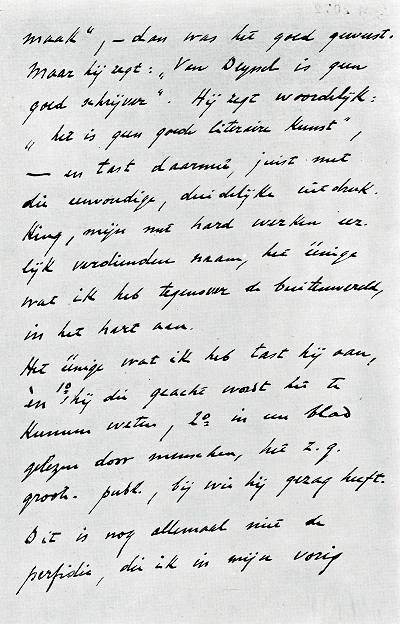 maak", – dan was het goed geweest.
Maar hij zegt: „Van Deyssel is geen
goed schrijver". Hij zegt woordelijk:
„het is geen goede literaire kunst",
– en tast daarmeê, juist met
die eenvoudige, duidelijke uitdruk-
king, mijn met hard werken eer-
lijk verdienden naam, het éénige
wat ik heb tegenover de buitenwereld,
in het hart aan.
Het éénige wat ik heb tast hij aan,
èn 1o hij die geacht wordt het te
kunnen weten, 2o in een blad
gelezen door menschen, het z.g.
groote publ., bij wie hij gezag heeft.
Dit is nog allemaal niet de
perfidie, die ik in mijn vorig